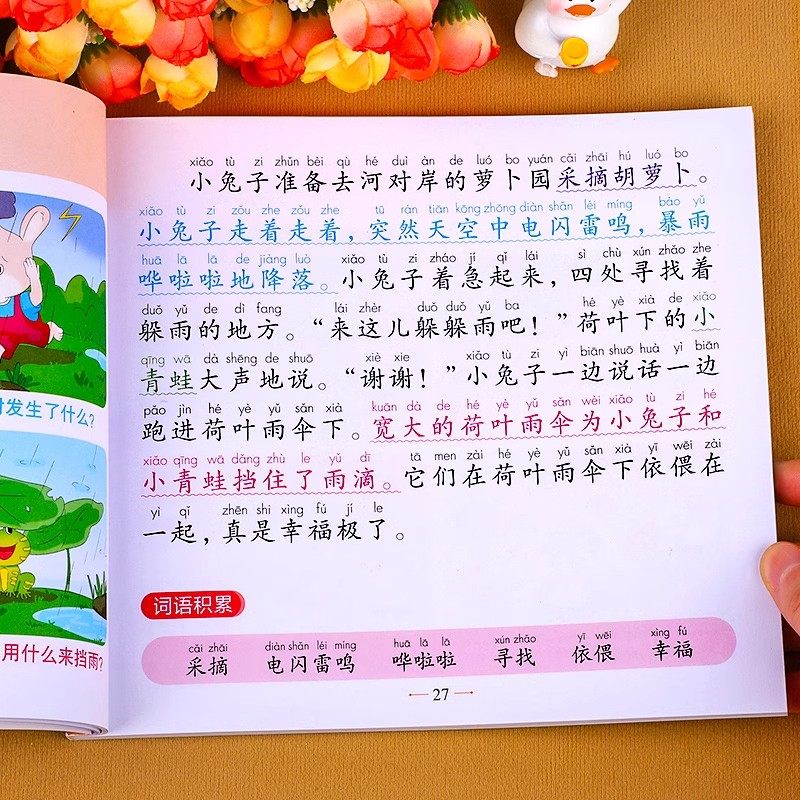 xiǎo tù zi zhǔn bèi qù hé duì àn de luó bo yuán cǎi zhāi hú luó bo
小兔子准备去河对岸的萝卜园采摘胡萝卜。
xiǎo tù zi zǒu zhe zǒu zhe tū rán tiān kōng zhōng diàn shǎn léi míng bào yǔ
小兔子走着走着，突然天空中电闪雷鸣，暴雨
huā lā lā de jiàng luò xiǎo tù zi zháo jí qǐ lái sì chù xún zhǎo zhe
哗啦啦地降落。小兔子着急起来，四处寻找着
duǒ yǔ de dì fang lái zhèr duǒ duǒ yǔ ba hé yè xià de xiǎo
躲雨的地方。“来这儿躲躲雨吧！”荷叶下的小
qīng wā dà shēng de shuō xiè xie xiǎo tù zi yì biān shuō huà yì biān
青蛙大声地说。“谢谢！”小兔子一边说话一边
pǎo jìn hé yè yǔ sǎn xià kuān dà de hé yè yǔ sǎn wèi xiǎo tù zi hé
跑进荷叶雨伞下。宽大的荷叶雨伞为小兔子和
xiǎo qīng wā dǎng zhù le yǔ dī tā men zài hé yè yǔ sǎn xià yī wēi zài
小青蛙挡住了雨滴。它们在荷叶雨伞下依偎在
yì qǐ zhēn shi xìng fú jí le
一起，真是幸福极了。
词语积累
cǎi zhāi diàn shǎn léi míng huā lā lā xún zhǎo yī wēi xìng fú
采摘 电闪雷鸣 哗啦啦 寻找 依偎 幸福
27
发生了什么？
用什么来挡雨？